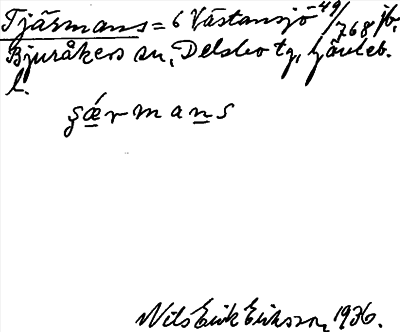 Tjärmans = 6 Västansjö 49/768 jb,
Bjuråkers sn, Delsbo tg, Gävleb.
l.
ʂǽrmans
Nils Erik Eriksson 1936.